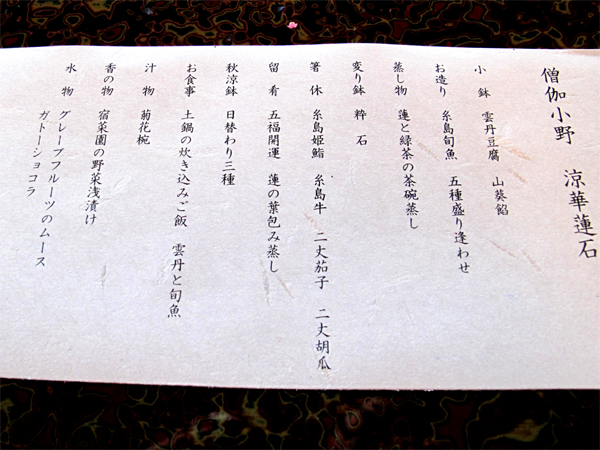 僧伽小野　涼華蓮石
小　鉢　雲丹豆腐　山葵餡
お造り　糸島旬魚　五種盛り逢わせ
蒸し物　蓮と緑茶の茶碗蒸し
変り鉢　粋　石
箸　休　糸島姫鮨　糸島牛　二丈茄子　二丈胡瓜
留　肴　五福開運　蓮の葉包み蒸し
秋涼鉢　日替わり三種
お食事　土鍋の炊き込みご飯　雲丹と旬魚
汁　物　菊花椀
香の物　宿菜園の野菜浅漬け
水　物　グレープフルーツのムース
ガトーショコラ